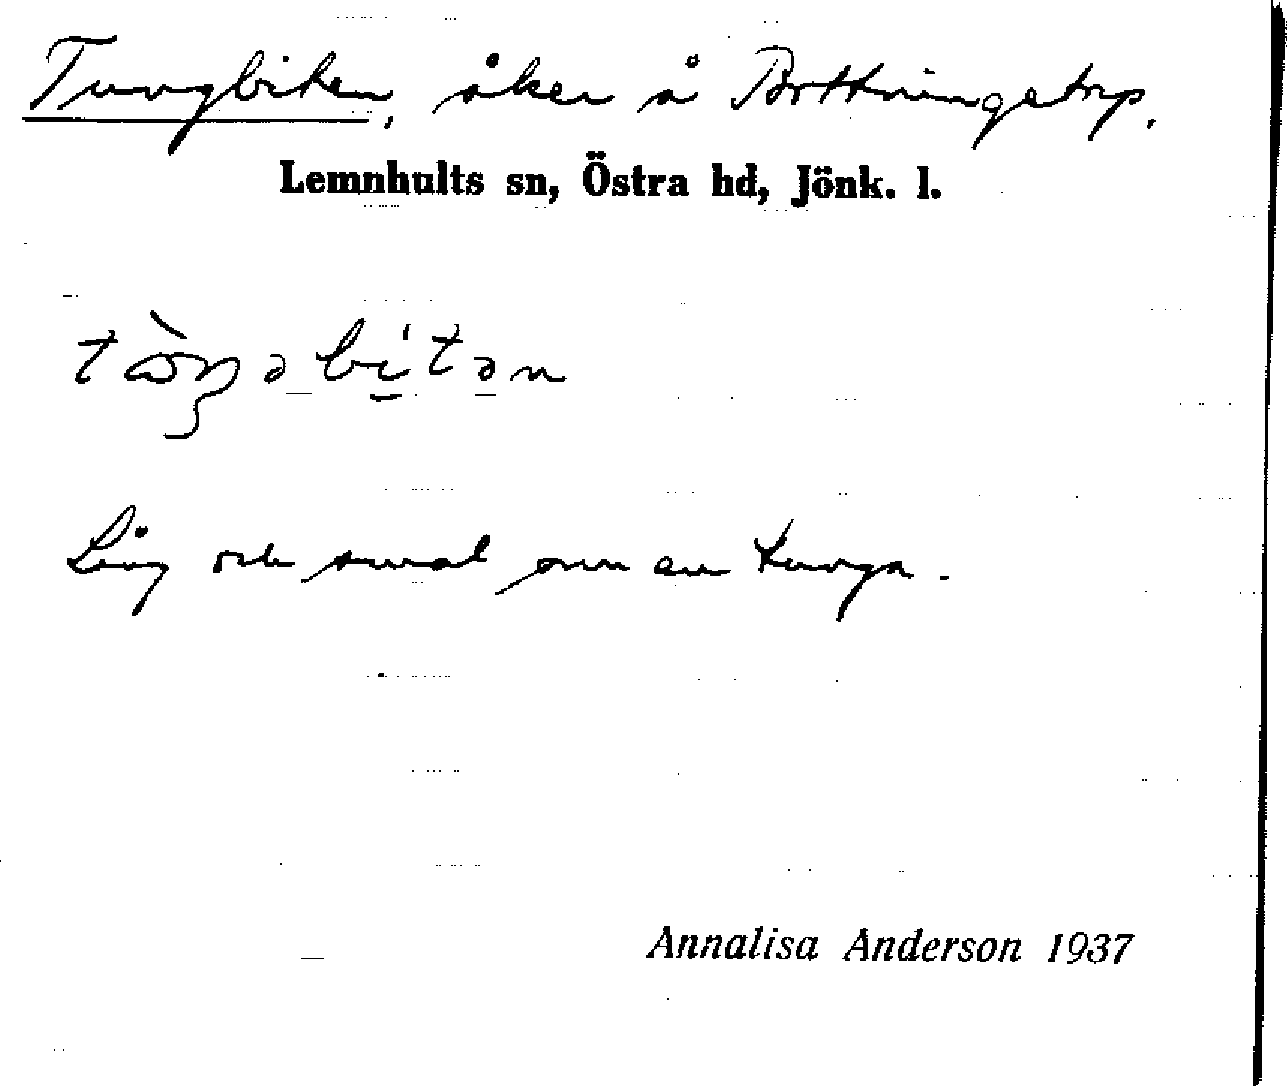 Tungbiten, åker å Bottningetorp.
Lemnhults sn, Östra hd, Jönk. l.
Lång och smal som en tunga.
Annalisa Anderson 1937